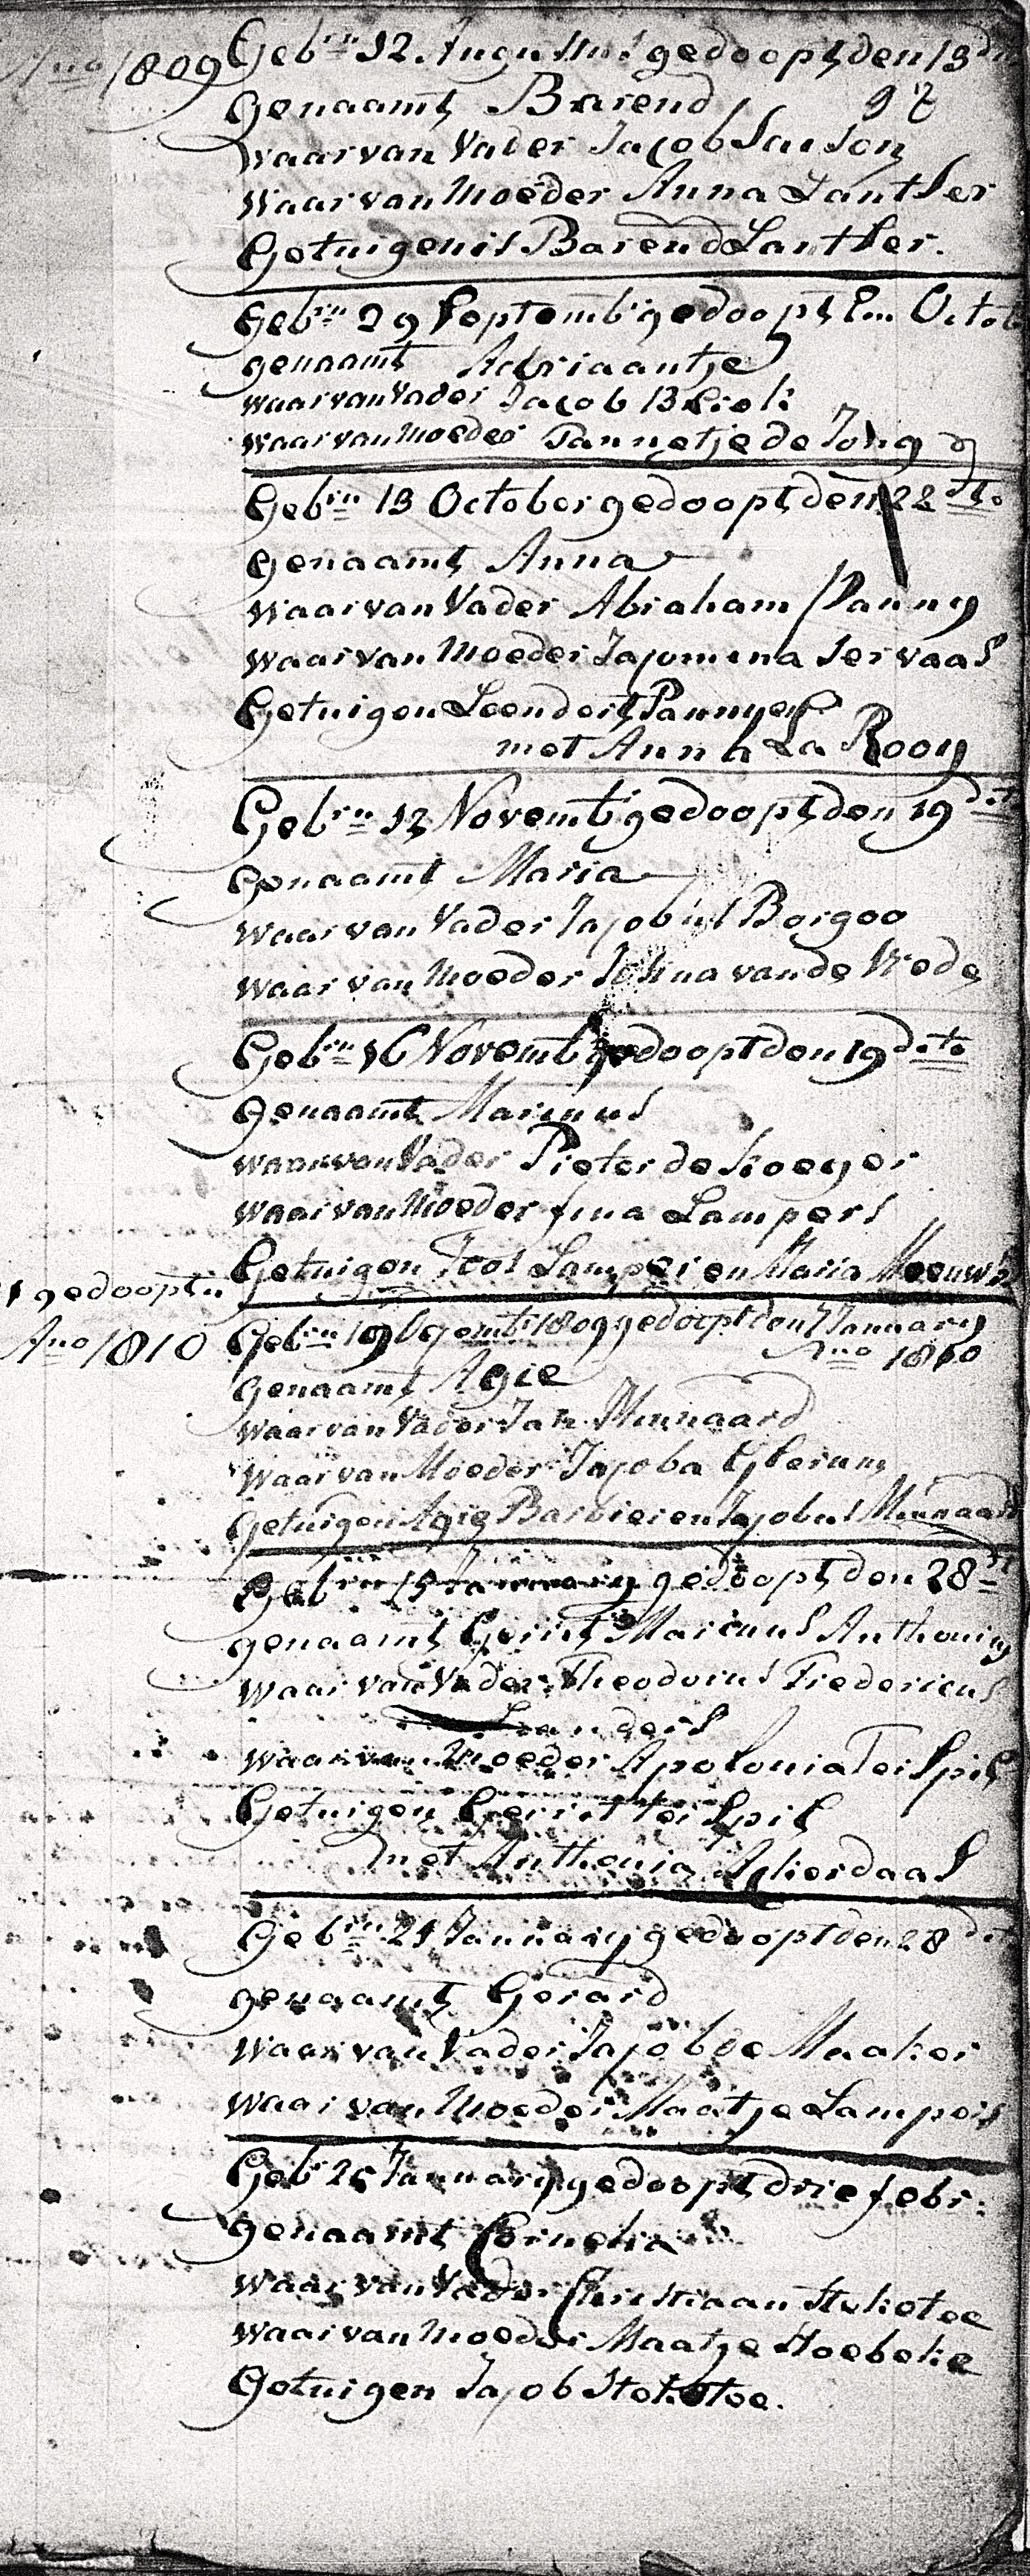 Ano 1809 Gebrn 12 Augustus gedoopt den 13
genaamt Barend
waar van Vader Jacob Sanson
waar van Moeder Anna Lantser
Getuigenis Barend Lantser.
Gebrn 29 Septembr gedoopt Octob
genaamt Adriaantje
waar van Vader Jacob Bliek
waar van Moeder Pannetje de Jong
Gebrn 13 October gedoopt den 22 dto
genaamt Anna
waar van Vader Abraham Panny
waar van Moeder Jacomina Servaas
Getuigen Leendert Pannyen
met Anna La Rooy
Gebrn 12 Novemb gedoopt den 19 dto
genaamt Maria
waar van Vader Jacobus Borgoo
waar van Moeder vande Vrede
Gebrn 16 Novemb gedoopt den 19 dto
genaamt Marinus
waar van Vader Pieter de Koeyer
waar van Moeder fina Lampers
Getuigen Joos Lamper en Maria Meeuws
gedoopt
Ano 1810 Gebrn 19 1809 gedoopt den 7 January
Ano 1810
genaamt Agie
waar van Vader Jan Minnaard
waar van Moeder Jacoba Glerum
Getuigen Agie Barbier en Jacobus Minnaard
Gebrn 15 January gedoopt den 28 dt
genaamt Gerrit Marinus Anthony
waar van Vader Theodorus Frederieus
Leanders
waar van Moeder Apolonia Ter Spil
Getuigen Gerrit ter Spil
met Anthonia Ackerdaas
Gebrn 21 January gedoopt den 28 dt
genaamt Gerard
waar van Vader Jacob de Maaker
waar van Moeder Maatje Lampers
Geb 25 January gedoopt drie febr:
genaamt Cornelia
waar van Vader Christiaan Stokotee
waar van Moeder Maatje Hoebeke
Getuigen Jacob Stokotee.